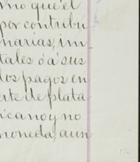 mo que el
por contribu
narias, im
tales ó á sus
los pagos en
rte de plata
icano y no
moneda, aun